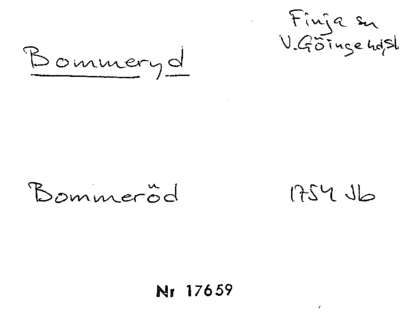 Bommeryd
Finja sn
V. Göinge hdsl
Bommeröd
1754 Jb
Nr 17659